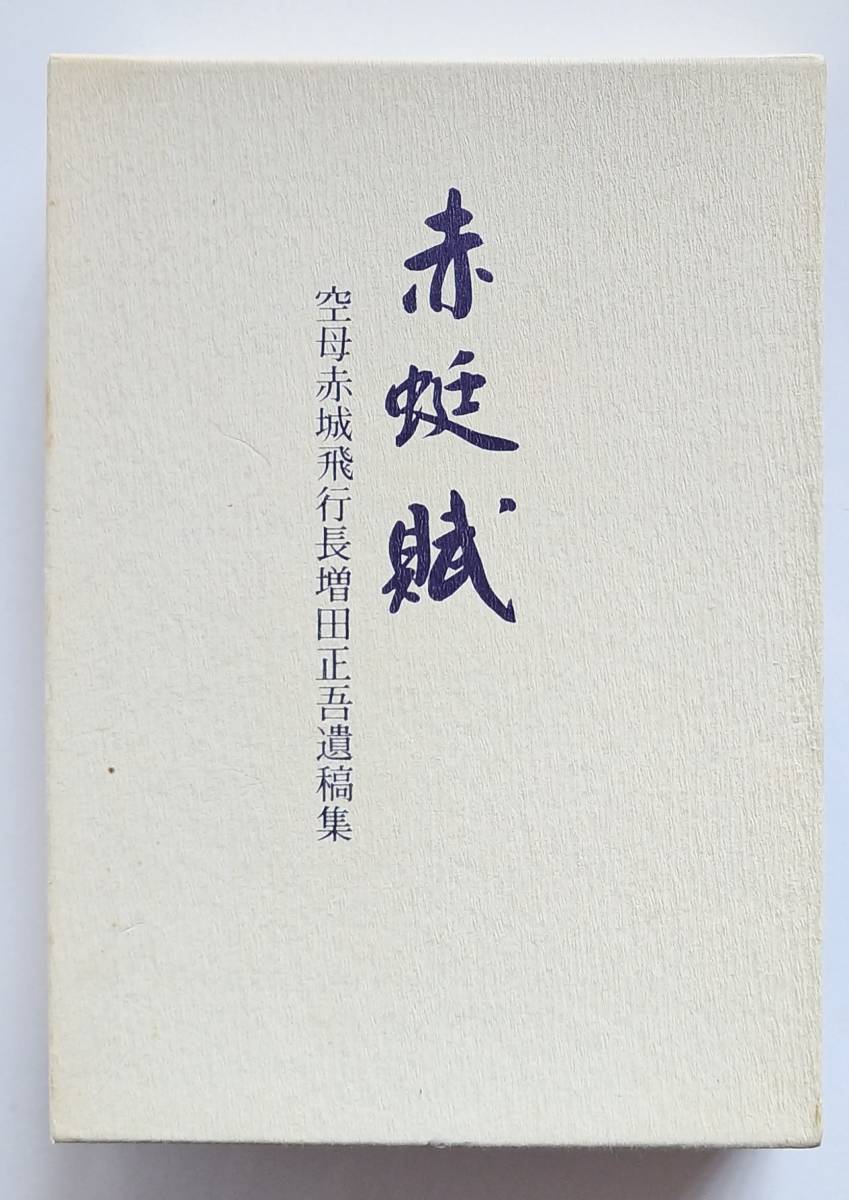 赤蜓賦
空母赤城飛行長増田正吾遺稿集